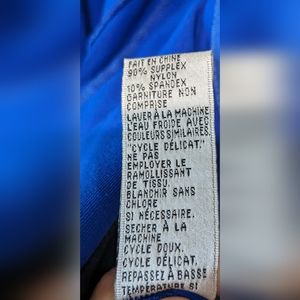 FAIT EN CHINE
90% SUPPLEX
NYLON
10% SPANDEX
GARNITURE NON
COMPRISE
LAVER À LA MACHINE
L'EAU FROIDE AVEC
COULEURS SIMILAIRES.
"CYCLE DÉLICAT."
NE PAS
EMPLOYER LE
RAMOLLISSANT
DE TISSU.
BLANCHIR SANS
CHLORE
SI NÉCESSAIRE.
SECHER À LA
MACHINE
CYCLE DOUX.
CYCLE DÉLICAT.
REPASSEZ À BASSE
TEMPÉRATURE SI